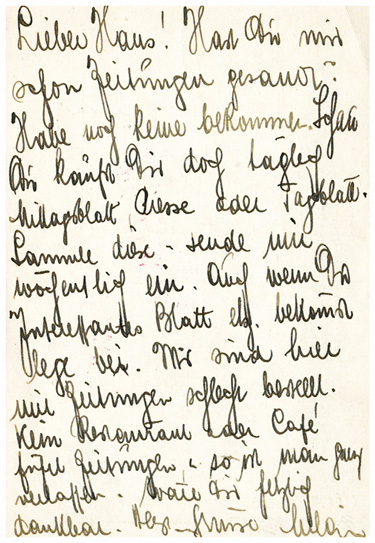 Lieber Hans! Hast Du mir
schon Zeitungen gesandt?
Habe noch keine bekommen.
Du kaufst Dir doch täglich
Mittagsblatt Presse oder Tagblatt.
Sammle diese - sende mir
wöchentlich ein. Auch wenn Du
Interessantes Blatt etz. bekommst
lege bei. Wir sind hier
mit Zeitungen schlecht bestellt.
Kein Restaurant oder Café
führt Zeitungen u so ist man ganz
verlassen. Wäre Dir
dankbar. Herz. Grüsse